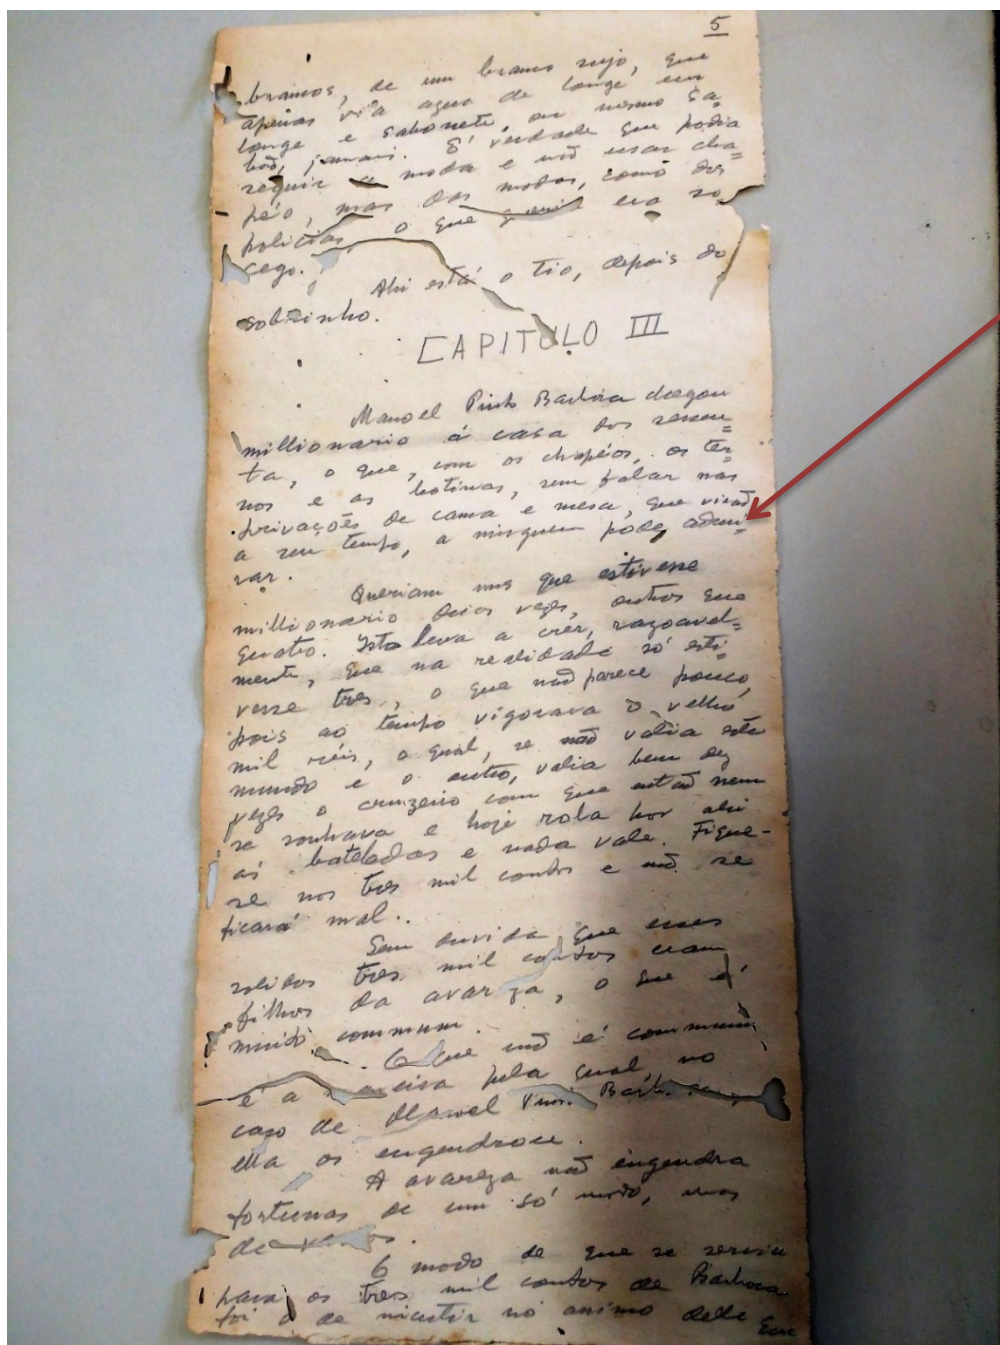 5
brancos, de um branco sujo, que
apenas via agua de longe em
longe e sabonete, ou mesmo sa-
bão, jamais. E' verdade que podia
seguir a moda e não usar cha=
péo, mas das modas, como dos
policias, o que queria era so
cego.
Ahi está o tio, depois do
sobrinho.
CAPITULO III
Manoel Pinto Barbosa chegou
millionario á casa dos sessen=
ta, o que, com os chapéos, os ter=
nos e as botinas, sem falar nas
privações de cama e mesa, que virão
a seu tempo, a ninguem pode admi=
rar.
Queriam uns que estivesse
millionario duas vezes, outros que
quatro. Isto leva a crer, razoavel=
mente, que na realidade só esti=
vesse tres, o que não parece pouco,
pois ao tempo vigorava o velho
mil réis, o qual, se não valia este
mundo e o outro, valia bem dez
vezes o cruzeiro com que então nem
se sonhava e hoje rola por ahi
ás bateladas e nada vale. Figue-
se nos tres mil contos e não se
ficará mal..
Sem duvida que esses
solidos tres mil contos eram
filhos da avareza, o que é
muito commum.
O que não é commum
é a pela qual, no
caso de Manoel Barbosa,
ella os engendrou.
A avareza não engendra
fortunas de um só modo, mas
de varios.
O modo de que se serviu
para os tres mil contos de Barbosa
foi o de incutir no animo delle que